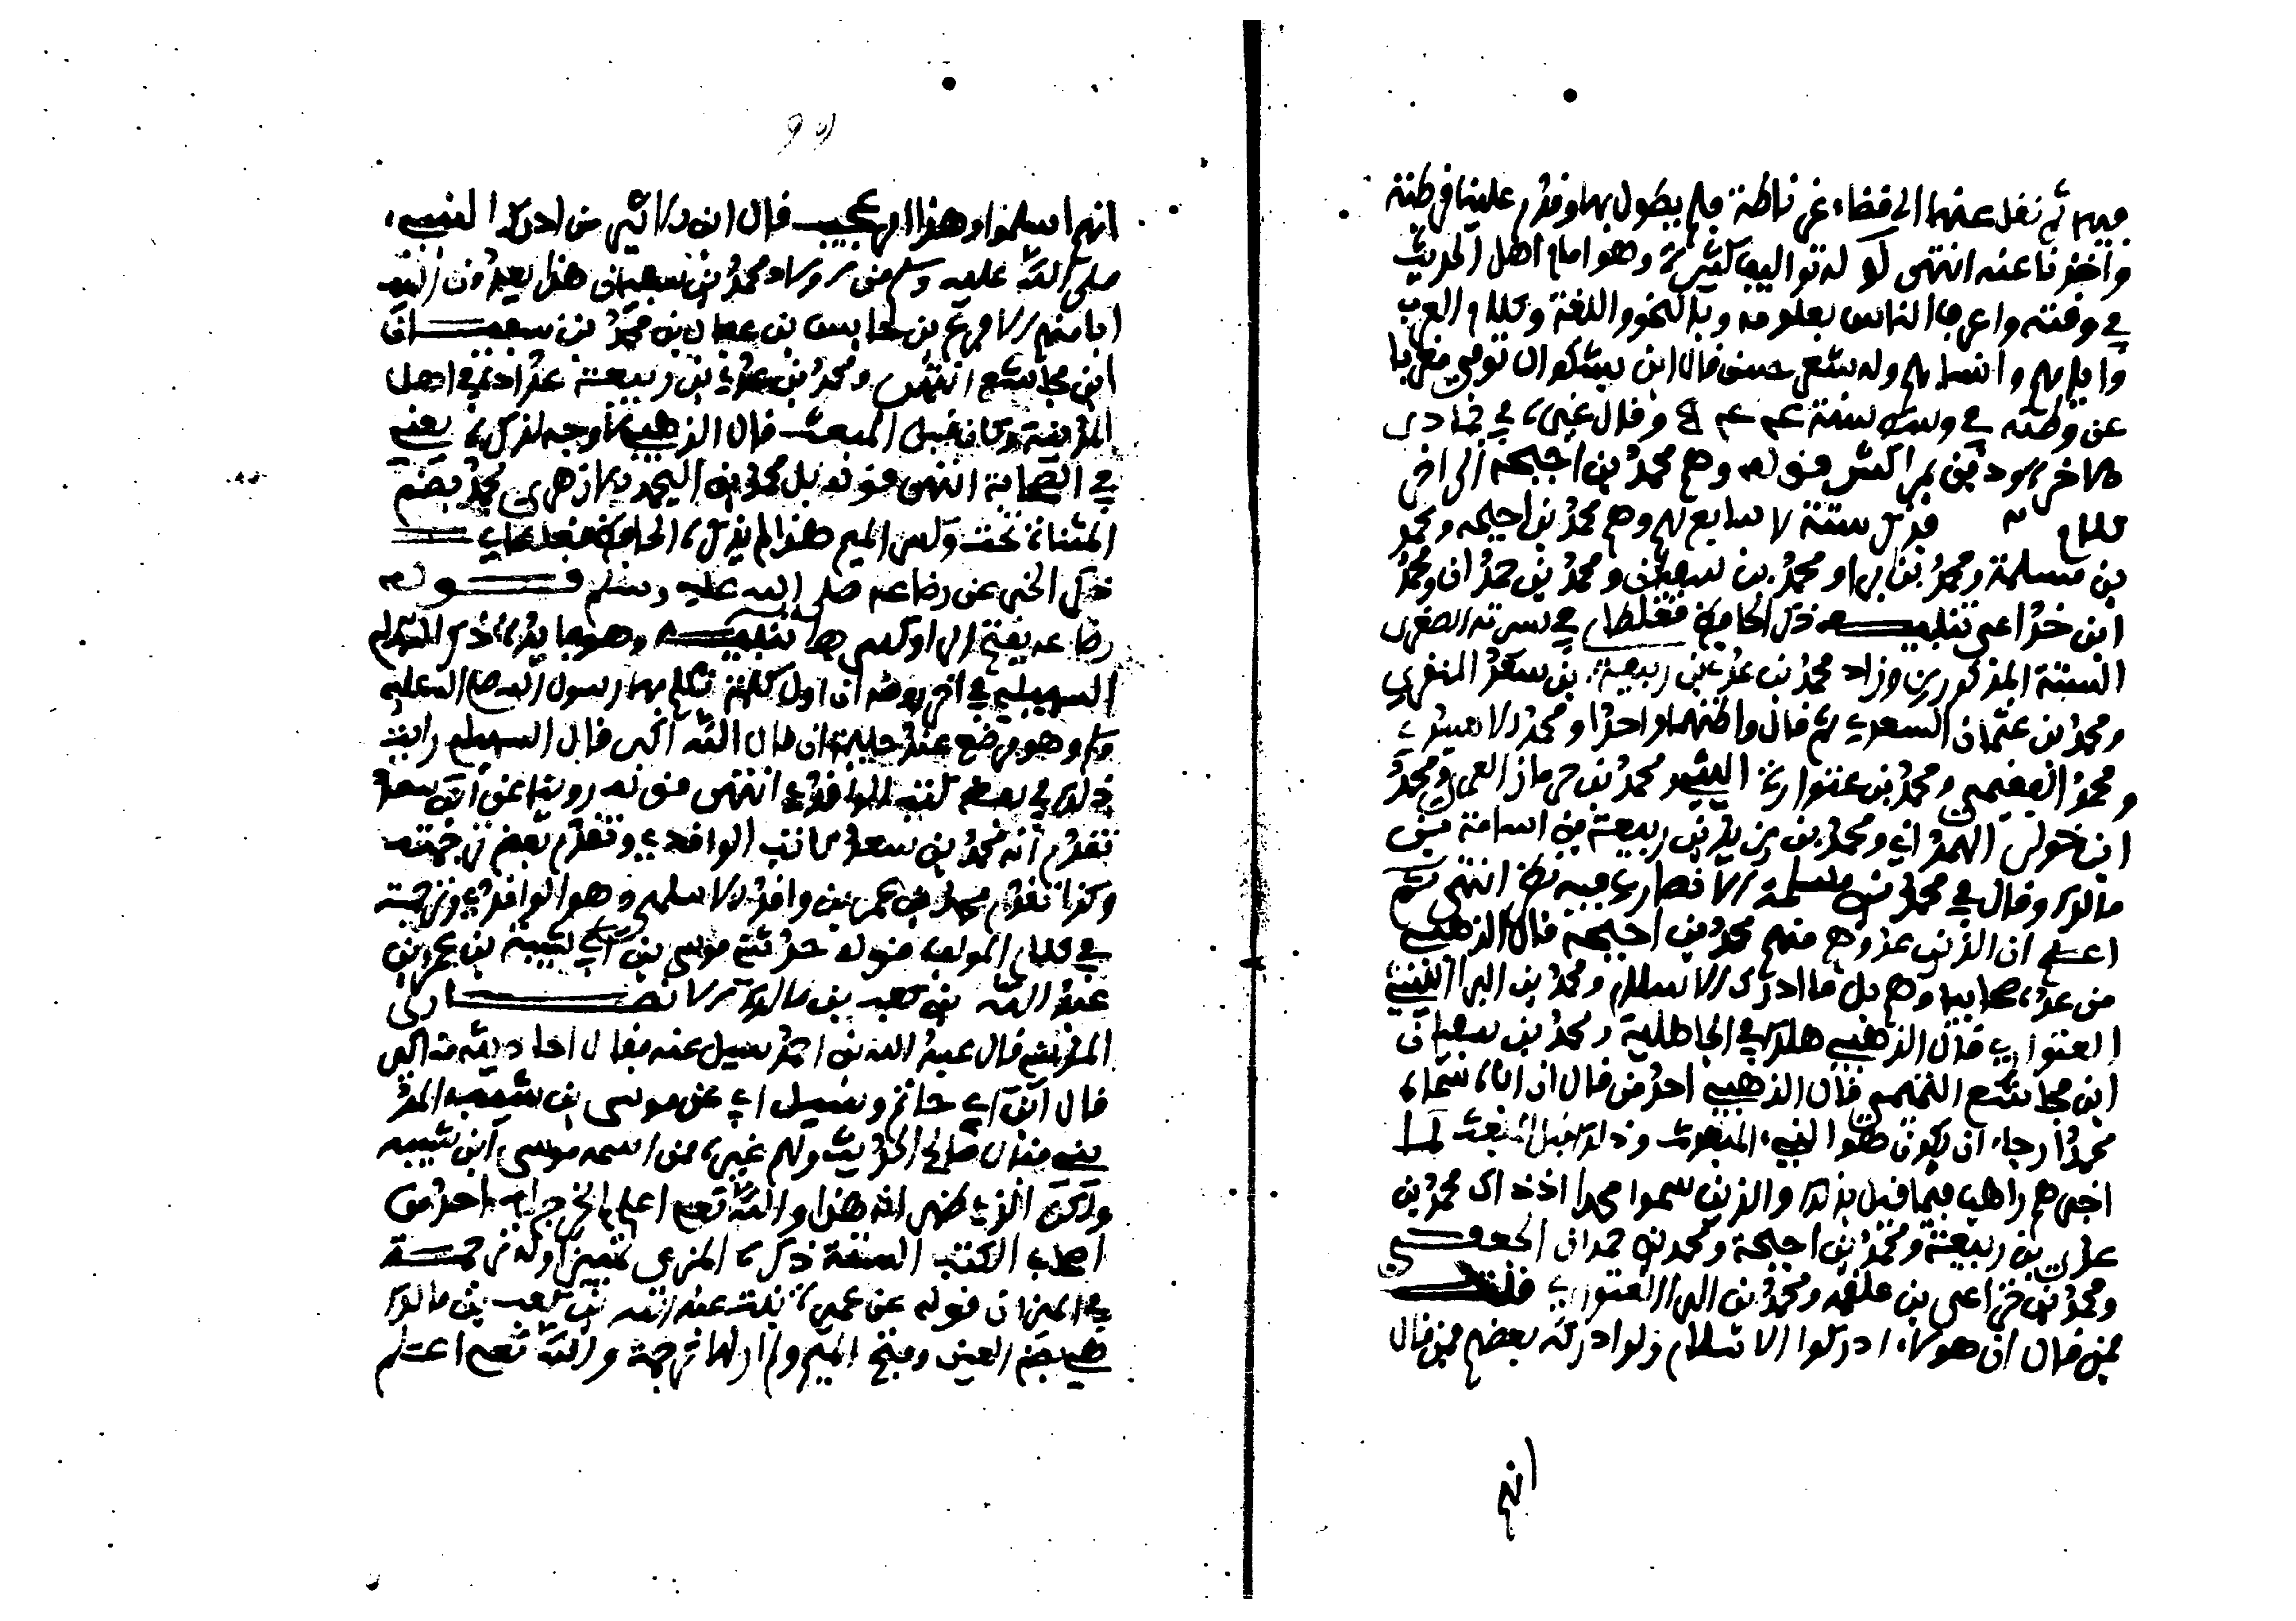 فيهما ثم نقل عنهما الى قضاء غرناطة فلم يطول بها وقدم علينا قرطبة
واخذنا عنه انتهى له تواليف كثيرة وهو امام اهل الحديث
في وقته واعرف الناس بعلومه وبالنحو واللغة وكلام العرب
وايامهم وانسابهم وله شعر حسن قال ابن بشكوال توفي مغربا
عن وطنه في وسط سنة وقال غيره في جمادى
الاخر ودفن بمراكش قوله وهم محمد بن احيحة الى اخر
كلامه فذكر ستة لا سابع لهم وهم محمد بن احيحة ومحمد
بن مسلمة ومحمد بن برا ومحمد بن سفيان ومحمد بن حمران ومحمد
ابن خزاعي تنبيه ذكر الحافظ مغلطاي في سيرته الصغرى
الستة المذكورين وزاد محمد بن عدي بن ربيعة بن سعد المنقري
ومحمد بن عثمان السعدي ثم قال واظنهما واحدا ومحمد الاسيدي
ومحمد الفقيمي ومحمد بن عتوارة الليثي ومحمد بن حرماز العمري ومحمد
ابن خولي الهمداني ومحمد بن يزيد بن ربيعة بن اسامة بن
مالك وقال في محمد بن مسلمة الانصاري فيه نظر انتهى ثم
اعلم ان الذين عدوهم منهم محمد بن احيحة قال الذهبي
من عده صحابيا وهم بل ما ادرك الاسلام ومحمد بن البرا الليثي
العتواري قال الذهبي هلك في الجاهلية ومحمد بن سفيان
ابن مجاشع التميمي قال الذهبي احد من قال ان اباه سماه
محمدا رجاء ان يكون هو النبي المبعوث وذلك قبل المبعث لما
اخبرهم راهب فيما قيل بذلك والذين سموا محمدا اذ ذاك محمد بن
عدي بن ربيعة ومحمد بن احيحة ومحمد بن حمران الجعفي
ومحمد بن خزاعي بن علقمة ومحمد بن البرا العتواري قلت
فمن قال ان هولاء ادركوا الاسلام ولو ادركه بعضهم فمن قال
انهم
انهم اسلموا وهذا عجيب قال ابن الاثير من ادرك النبي
صلى الله عليه وسلم من اولاد محمد بن سفيان هذا يعدون اليه
ابا منهم الاقرع بن حابس بن عقال بن محمد بن سفيان
ابن مجاشع انتهى ومحمد بن عدي بن ربيعة عداده في اهل
المدينة وكان قبل المبعث قال الذهبي لا وجه لذكره يعني
في الصحابة انتهى قوله بل محمد بن اليحمد الازدي يحمد بضم
المثناة تحت وكسر الميم هذا لم يذكره الحافظ مغلطاي
ذكر الخبر عن رضاعه صلى الله عليه وسلم قوله
رضاعه بفتح الراء وكسرها تنبيه وهو فايدة ذكر
السهيلي في اخر روضه ان اول كلمة تكلم بها رسول الله صلى الله عليه
وسلم وهو مرضع عند حليمة ان قال الله اكبر قال السهيلي رايت
ذلك في بعض كتب الواقدي انتهى قوله روينا عن ابن سعد
تقدم انه محمد بن سعد كاتب الواقدي وتقدم بعض ترجمته
وكذا تقدم محمد بن عمر بن واقد الاسلمي وهو الواقدي وترجمته
في كلام المولف قوله حدثني موسى بن شيبة بن عمرو بن
عبد الله بن كعب بن مالك الانصاري
المدني قال عبد الله بن احمد سيل عنه فقال احاديثه مناكير
قال ابن ابي حاتم وسيل ابي عن موسى بن شيبة المد
يني فقال صالح الحديث ولهم غيره من اسمه موسى ابن شيبة
ولكن الذي ظهر انه هذا والله تعالى اعلم لم يخرج له احد من
اصحاب الكتب الستة ذكره المزي تمييزا وله ترجمة
في الميزان قوله عن عميرة بنت عبد الله بن كعب بن مالك
هي بضم العين وفتح الميم ولم ار لها ترجمة والله تعالى اعلم